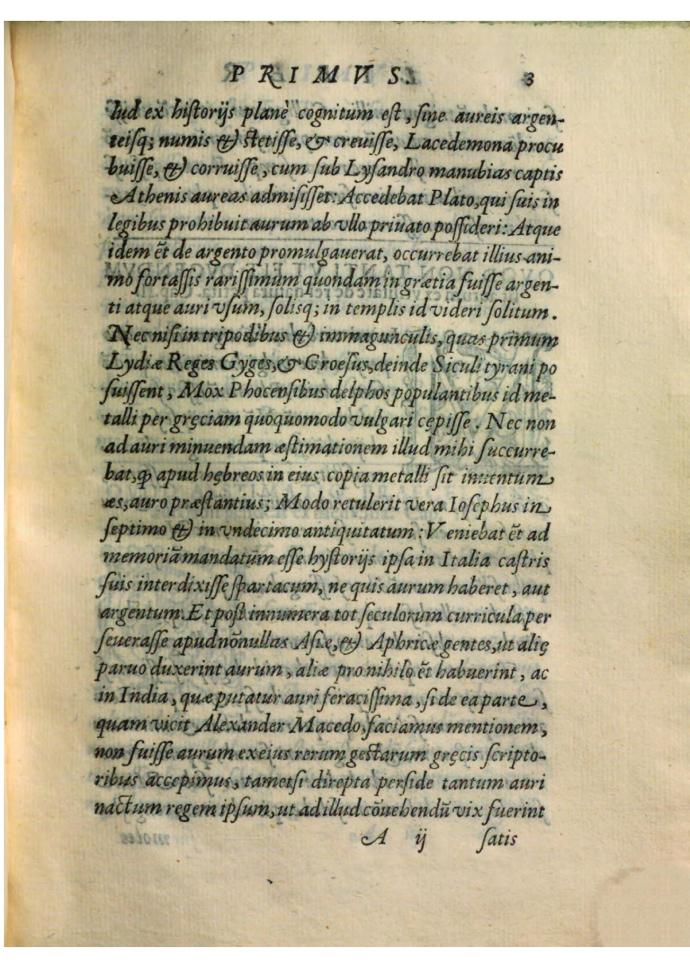 PRIMVS. 3
lud ex historijs planè cognitum est, sine aureis argen-
teisq; numis & stetisse, & creuisse, Lacedemona procu
buisse, & corruisse, cum sub Lysandro manubias captis
Athenis aureas admisisset: Accedebat Plato, qui suis in
legibus prohibuit aurum ab vllo priuato possideri: Atque
idem ēt de argento promulgauerat, occurrebat illius ani-
mo fortassis rarissimum quondam in grætia fuisse argen-
ti atque auri vsum, solisq; in templis id videri solitum.
Nec nisi in tripodibus & immagunculis, quas primum
Lydiæ Reges Gyges, & Croesus, deinde Siculi tyrani po
suissent, Mox Phocensibus delphos populantibus id me-
talli per gręciam quoquomodo vulgari cępisse. Nec non
ad auri minuendam æstimationem illud mihi succurre-
bat, ꝙ apud hębreos in eius copia metalli sit inuentum
æs, auro præstantius; Modo retulerit vera Iosephus in
septimo & in vndecimo antiquitatum: Veniebat ēt ad
memoriā mandatum esse hystorijs ipsa in Italia castris
suis interdixisse spartacum, ne quis aurum haberet, aut
argentum. Et post innumera tot seculorum curricula per
seuerasse apud nōnullas Asiæ, & Aphricæ gentes, ut alię
paruo duxerint aurum, aliæ pro nihilo ēt habuerint, ac
in India, quæ putatur auri feracissima, si de ea parte,
quam vicit Alexander Macedo, faciamus mentionem,
non fuisse aurum ex eius rerum gestarum gręcis scripto-
ribus accepimus, tametsi direpta perside tantum auri
nactum regem ipsum, ut ad illud cōuehendū vix fuerint
A ij satis